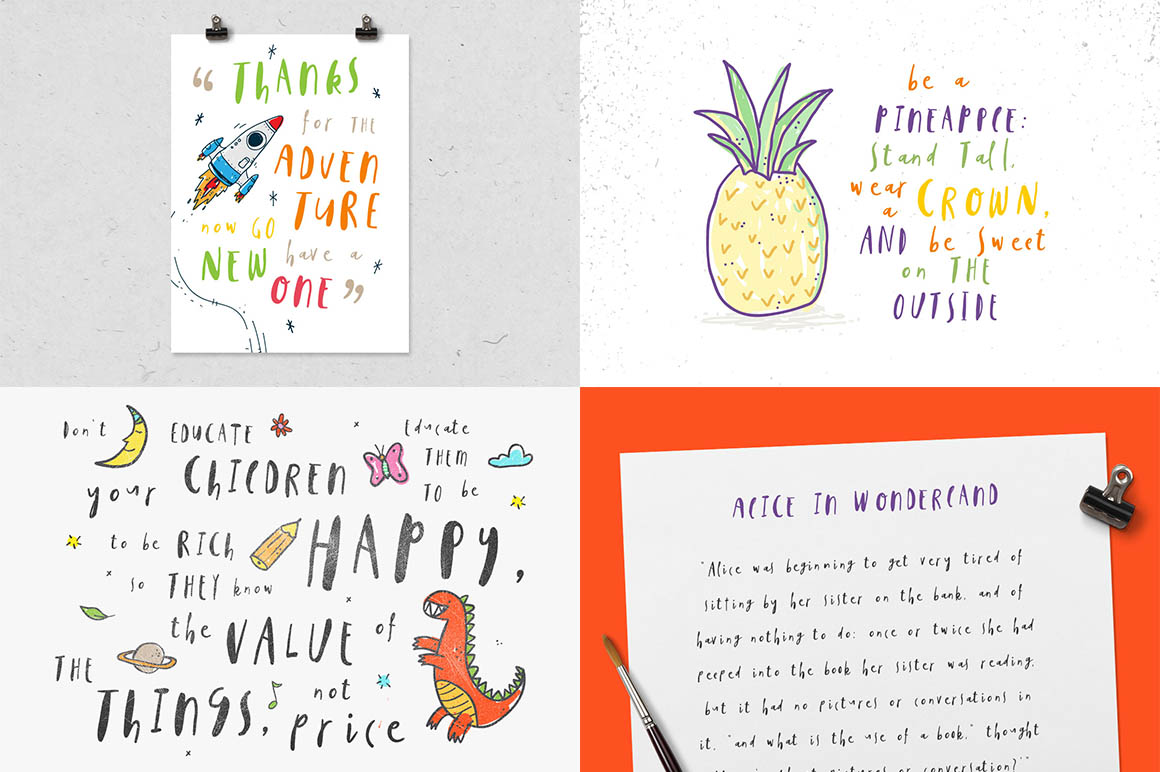 “ ThANKS
for THE
ADVEN
TURE
now GO
NEW have a
ONE ”
be a
PINEAPPLE:
Stand Tall,
wear
a CROWN,
AND be Sweet
on THE
OUTSIDE
Don't EDUCATE
your ChILDREN
to be RICH
Educate
THEM
TO be
HAPPY,
so THEY know
the VALUE of
THE
ThINGS, not
price
ALICE IN WONDERLAND
"Alice was beginning to get very tired of
sitting by her sister on the bank, and of
having nothing to do: once or twice she had
peeped into the book her sister was reading,
but it had no pictures or conversations in
it, "and what is the use of a book," thought
pictures or conversation?'"